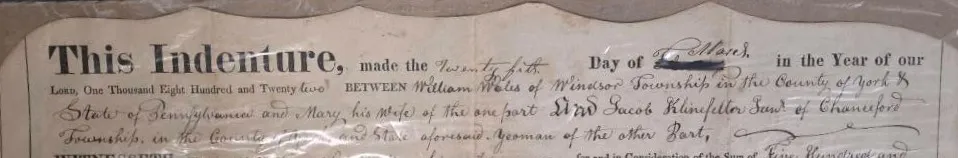 This Indenture, made the Twenty fifth Day of March in the Year of our
Lord, One Thousand Eight Hundred and Twenty two BETWEEN William Wales of Windsor Township in the County of York &
State of Pennsylvania and Mary his Wife of the one part And Jacob Klinefelter of Chanceford
Township, in the County and State aforesaid Yeoman of the other Part,
WITNESSETH for and in Consideration of the Sum of Five Hundred and